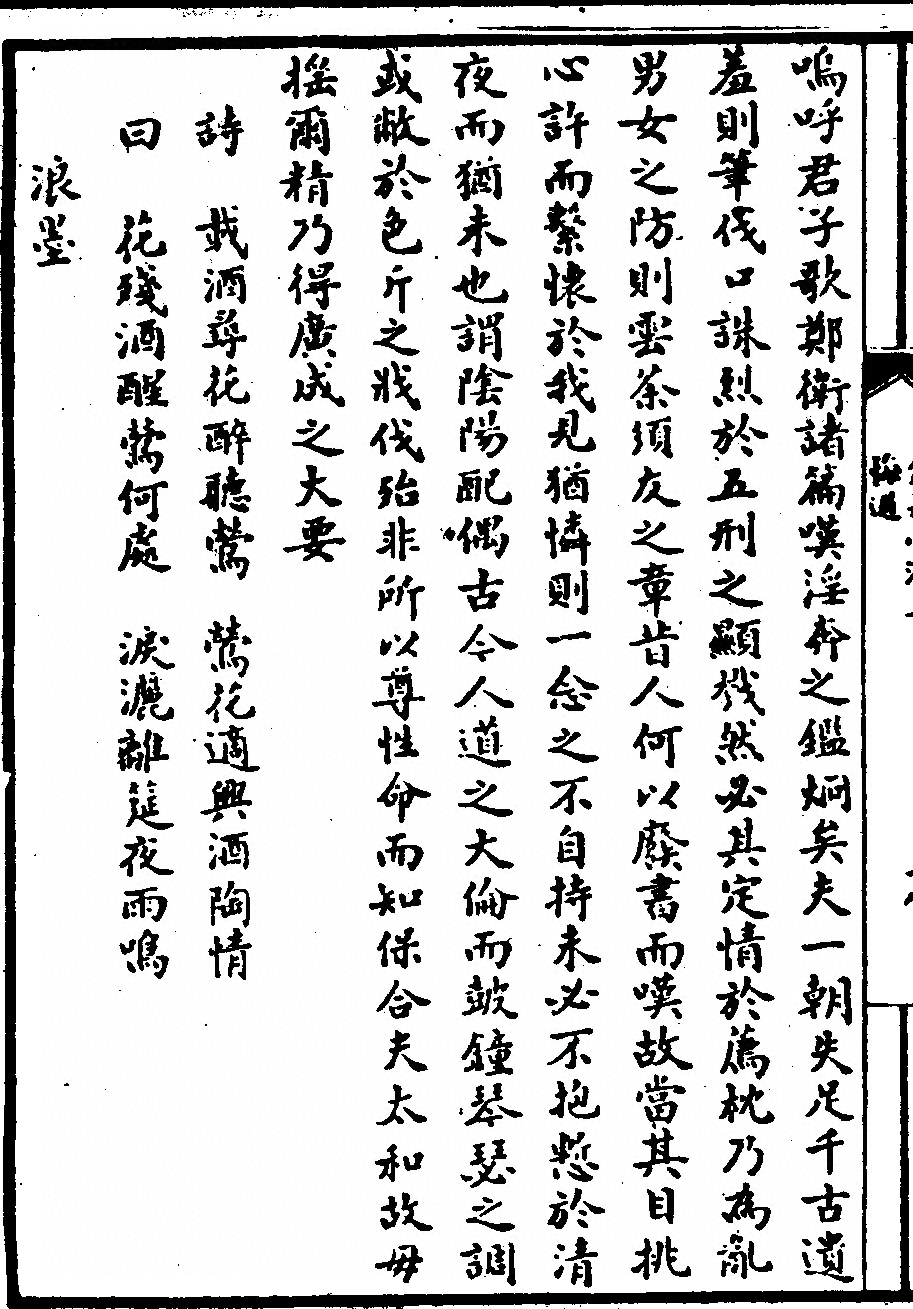 嗚呼君子歌鄭衛諸篇嘆淫奔之鑑炯矣夫一朝失足千古遺
羞則筆伐口誅烈於五刑之顯戮然必其定情於薦枕乃為亂
男女之防則雲茶須友之章昔人何以廢書而嘆故當其目挑
心許而繫懷於我見猶憐則一念之不自持未必不抱慙於清
夜而猶未也謂陰陽配偶古今人道之大倫而皷鐘琴瑟之調
或敝於色斤之戕伐殆非所以尊性命而知保合夫太和故毋
搖爾精乃得廣成之大要
詩　載酒尋花醉聽鶯　鶯花適興酒陶情
曰　花殘酒醒鶯何處　淚灑離筵夜雨鳴
浪墨
悔過